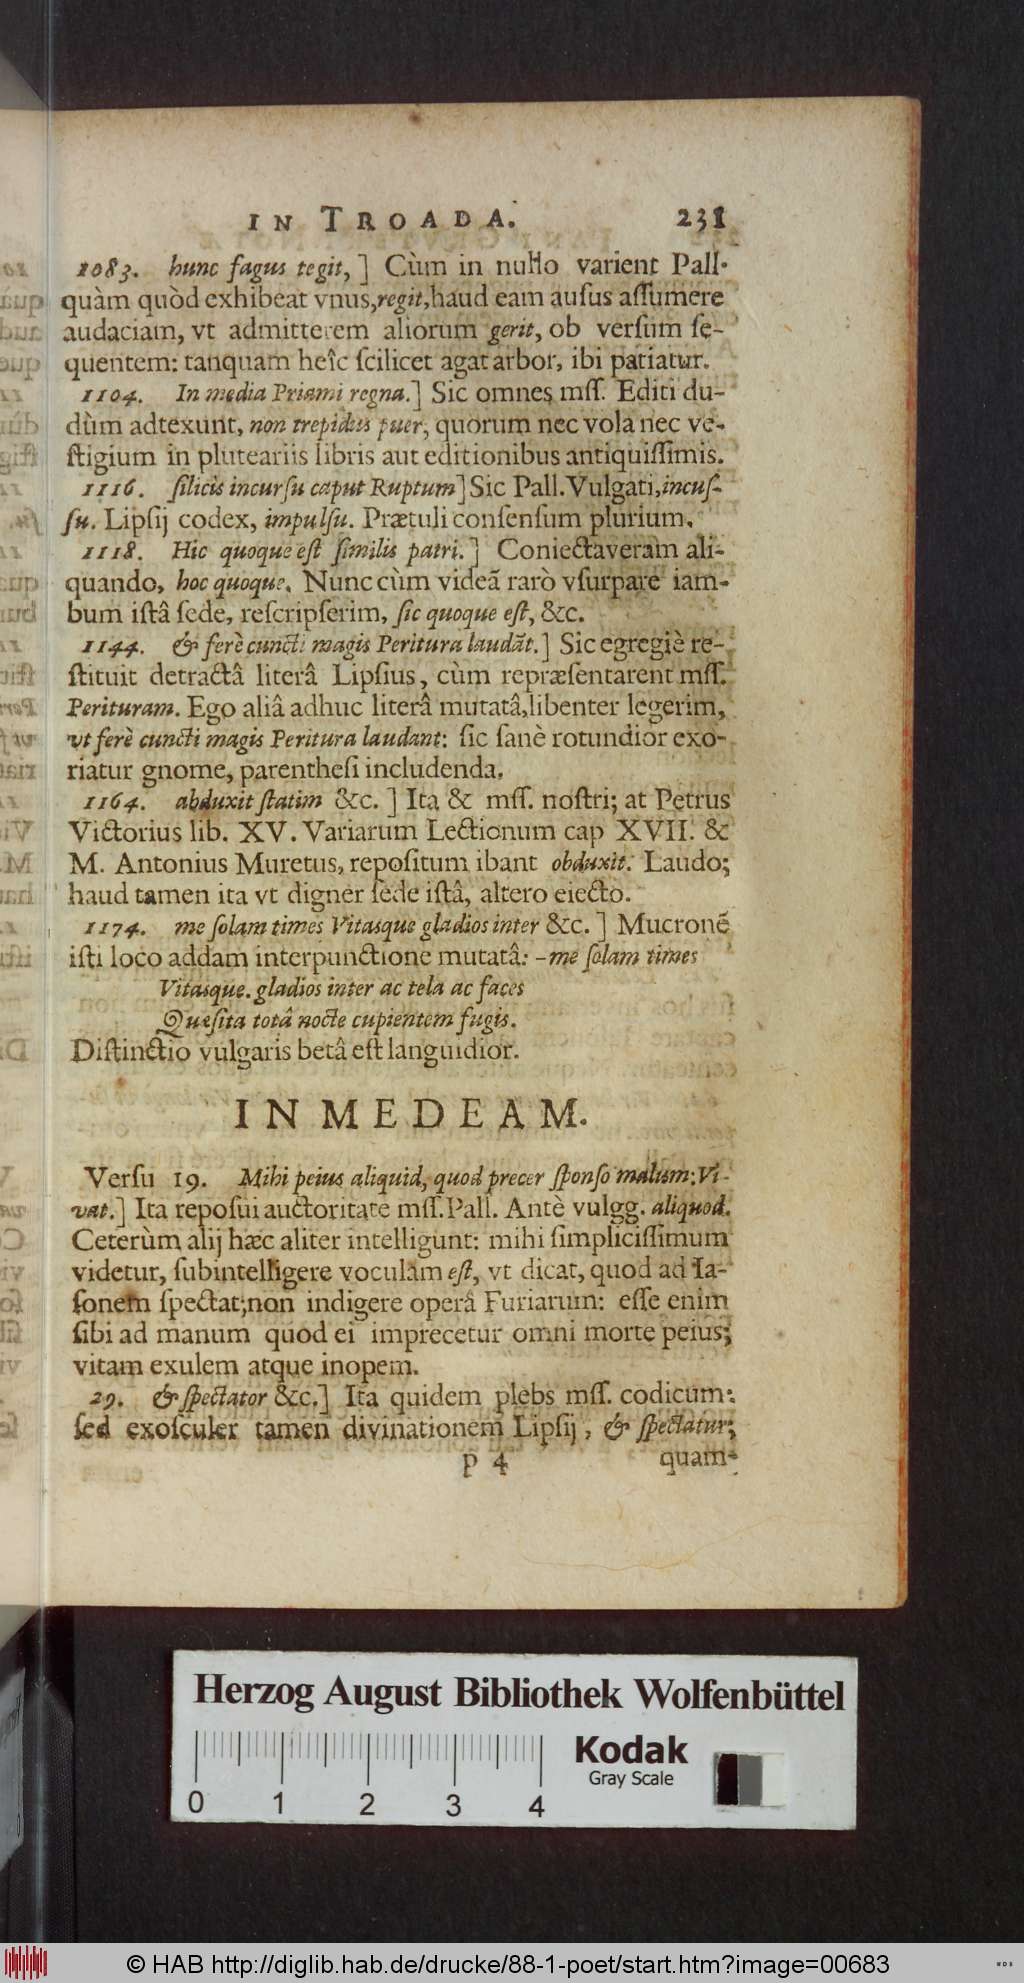 IN TROADA. 231
1083. hunc fagus tegit, ] Cùm in nullo varient Pall.
quàm quòd exhibeat vnus, regit, haud eam ausus aſſumere
audaciam, vt admitterem aliorum gerit, ob versum ſe-
quentem: tanquam heîc ſcilicet agat arbor, ibi patiatur.
1104. In media Priami regna.] Sic omnes mſſ. Editi du-
dùm adtexunt, non trepidus puer, quorum nec vola nec ve-
ſtigium in pluteariis libris aut editionibus antiquiſſimis.
1116. ſilicis incurſu caput Ruptum] Sic Pall. Vulgati, incuſ-
ſu. Lipſij codex, impulſu. Prætuli conſenſum plurium.
1118. Hic quoque eſt ſimilis patri.] Coniectaveram ali-
quando, hoc quoque. Nunc cùm videã rarò vſurpare iam-
bum iſtâ ſede, reſcripſerim, ſic quoque eſt, &c.
1144. & ferè cuncti magis Peritura laudãt.] Sic egregiè re-
ſtituit detractâ literâ Lipſius, cùm repræſentarent mſſ.
Perituram. Ego aliâ adhuc literâ mutatâ, libenter legerim,
vt ferè cuncti magis Peritura laudant: ſic ſanè rotundior exo-
riatur gnome, parentheſi includenda.
1164. abduxit ſtatim &c. ] Ita & mſſ. noſtri; at Petrus
Victorius lib. XV. Variarum Lectionum cap XVII. &
M. Antonius Muretus, repoſitum ibant obduxit. Laudo;
haud tamen ita vt digner ſede iſtâ, altero eiecto.
1174. me ſolam times Vitasque gladios inter &c. ] Mucronẽ
iſti loco addam interpunctione mutatâ: – me ſolam times
Vitasque. gladios inter ac tela ac faces
Quæſita totâ nocte cupientem fugis.
Diſtinctio vulgaris betâ eſt languidior.
IN MEDEAM.
Verſu 19. Mihi peius aliquid, quod precer ſponſo malum: Vi-
vat.] Ita repoſui auctoritate mſſ. Pall. Antè vulgg. aliquod.
Ceterùm alij hæc aliter intelligunt: mihi ſimpliciſſimum
videtur, ſubintelligere voculam eſt, vt dicat, quod ad Ia-
ſonem ſpectat; non indigere operâ Furiarum: eſſe enim
ſibi ad manum quod ei imprecetur omni morte peius;
vitam exulem atque inopem.
29. & ſpectator &c.] Ita quidem plebs mſſ. codicum:
ſed exoſculer tamen divinationem Lipſij, & ſpectatur;
p 4 quam-
Herzog August Bibliothek Wolfenbüttel
Kodak
Gray Scale
0 1 2 3 4
© HAB http://diglib.hab.de/drucke/88-1-poet/start.htm?image=00683